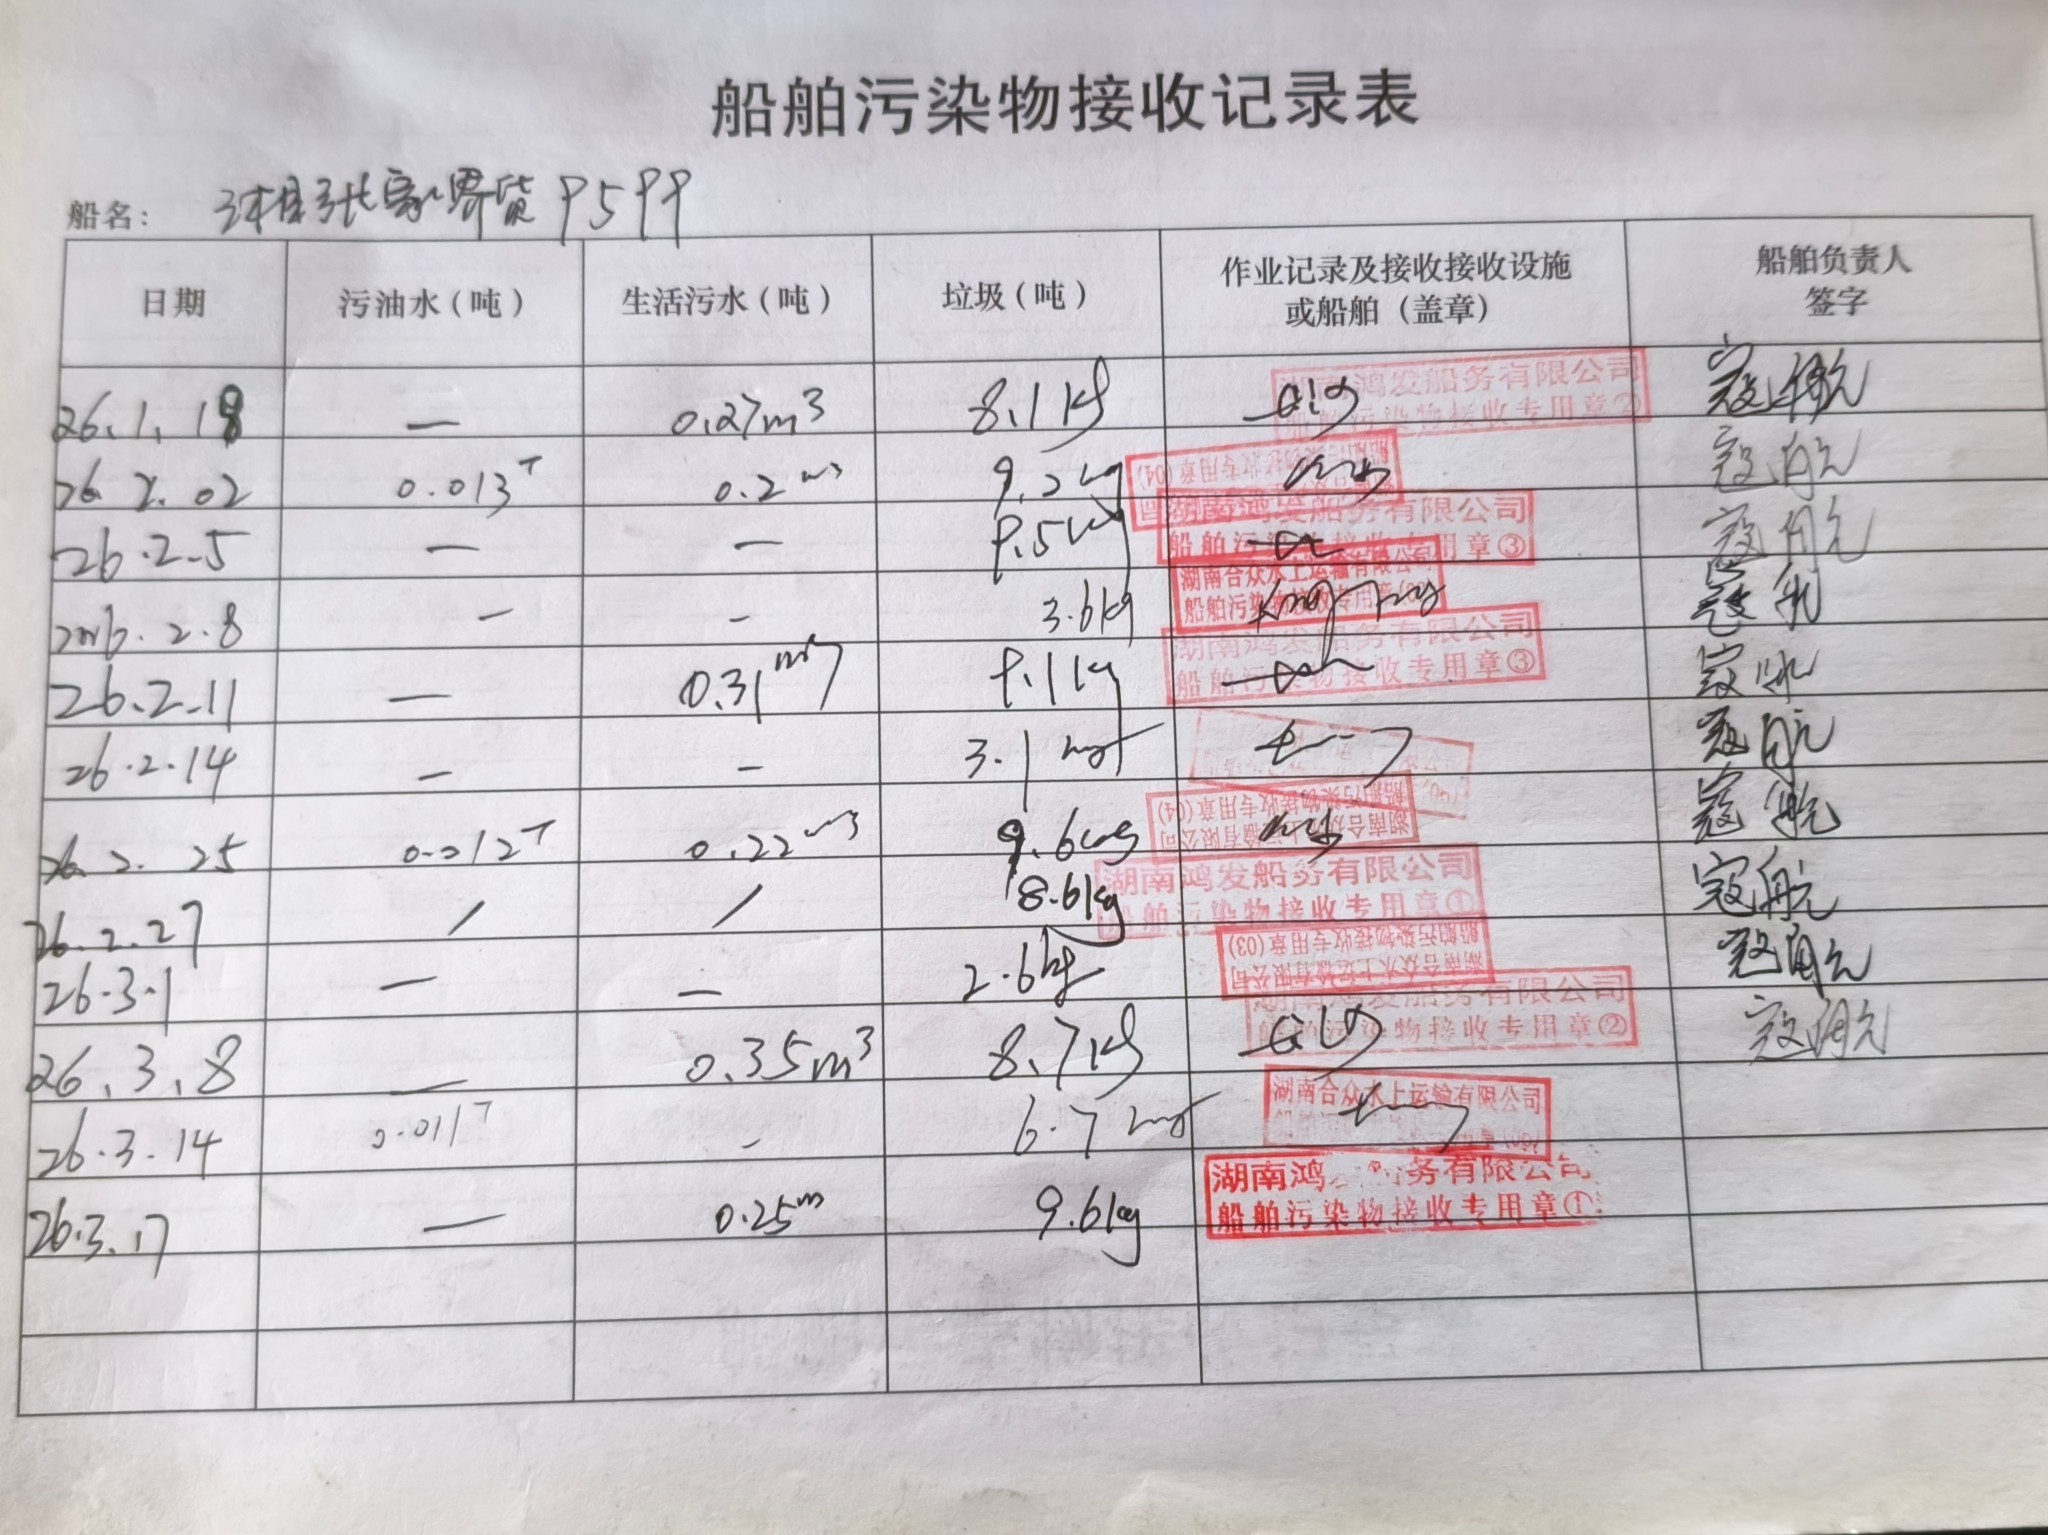 船舶污染物接收记录表
船名： 湘张家界货9599
日期 污油水（吨） 生活污水（吨） 垃圾（吨） 作业记录及接收接收设施或船舶（盖章） 船舶负责人签字
26.1.18 — 0.27m³ 8.1kg 湖南鸿发船务有限公司 船舶污染物接收专用章② 寇航
26.2.02 0.013T 0.2m³ 9.2kg 船舶污染物接收专用章(04) 寇航
26.2.5 — — 9.5kg 湖南鸿发船务有限公司 船舶污染物接收专用章③ 寇航
2026.2.8 — — 3.6kg 湖南合众水上运输有限公司 船舶污染物接收专用章 寇航
26.2.11 — 0.31m³ 9.1kg 湖南鸿发船务有限公司 船舶污染物接收专用章③ 寇航
26.2.14 — — 3.1kg 寇航
26.2.25 0.012T 0.22m³ 9.6kg 湖南合众水上运输有限公司 船舶污染物接收专用章(04) 寇航
26.2.27 / / 8.6kg 湖南鸿发船务有限公司 船舶污染物接收专用章① 寇航
26.3.1 — — 2.6kg 湖南合众水上运输有限公司 船舶污染物接收专用章(03) 寇航
26.3.8 — 0.35m³ 8.7kg 湖南鸿发船务有限公司 船舶污染物接收专用章② 寇航
26.3.14 0.011T — 6.7kg 湖南合众水上运输有限公司
26.3.17 — 0.25m 9.6kg 湖南鸿 务有限公司 船舶污染物接收专用章①